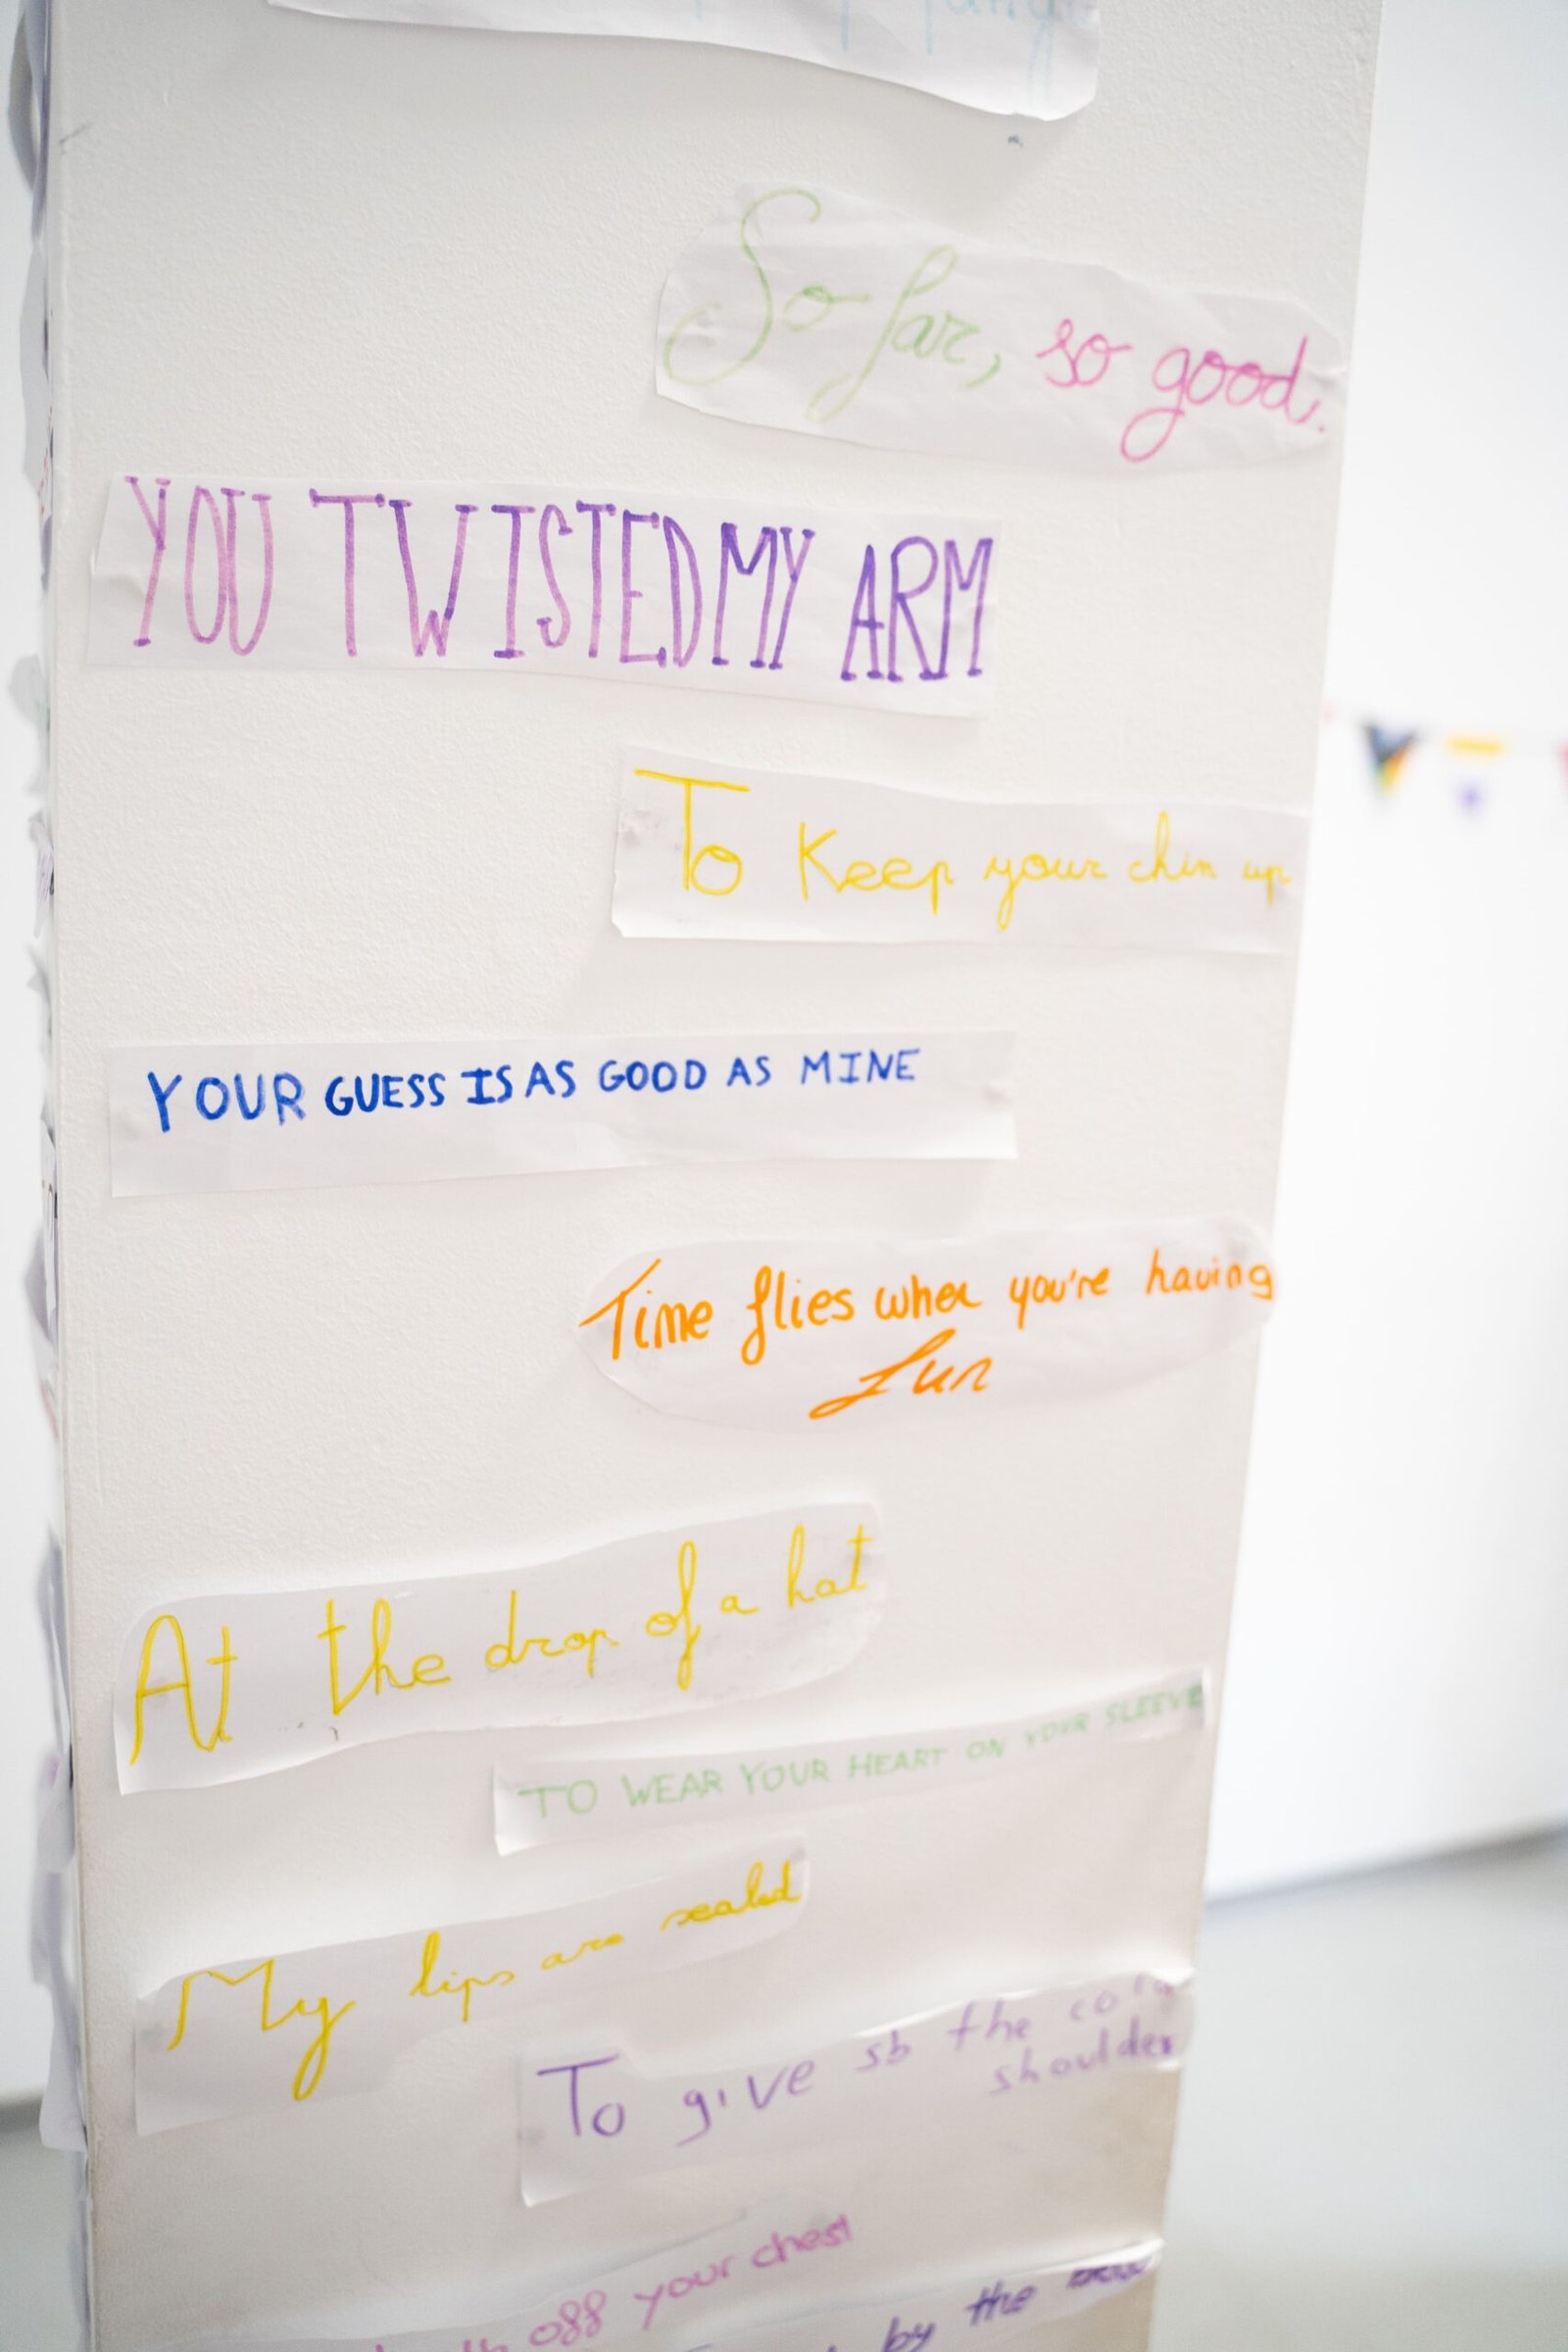 So far, so good.
YOU TWISTED MY ARM
To Keep your chin up
YOUR GUESS IS AS GOOD AS MINE
Time flies when you're having
fun
At the drop of a hat
TO WEAR YOUR HEART ON YOUR SLEEVE
My lips are sealed
To give sb the cold
shoulder
off your chest
by the